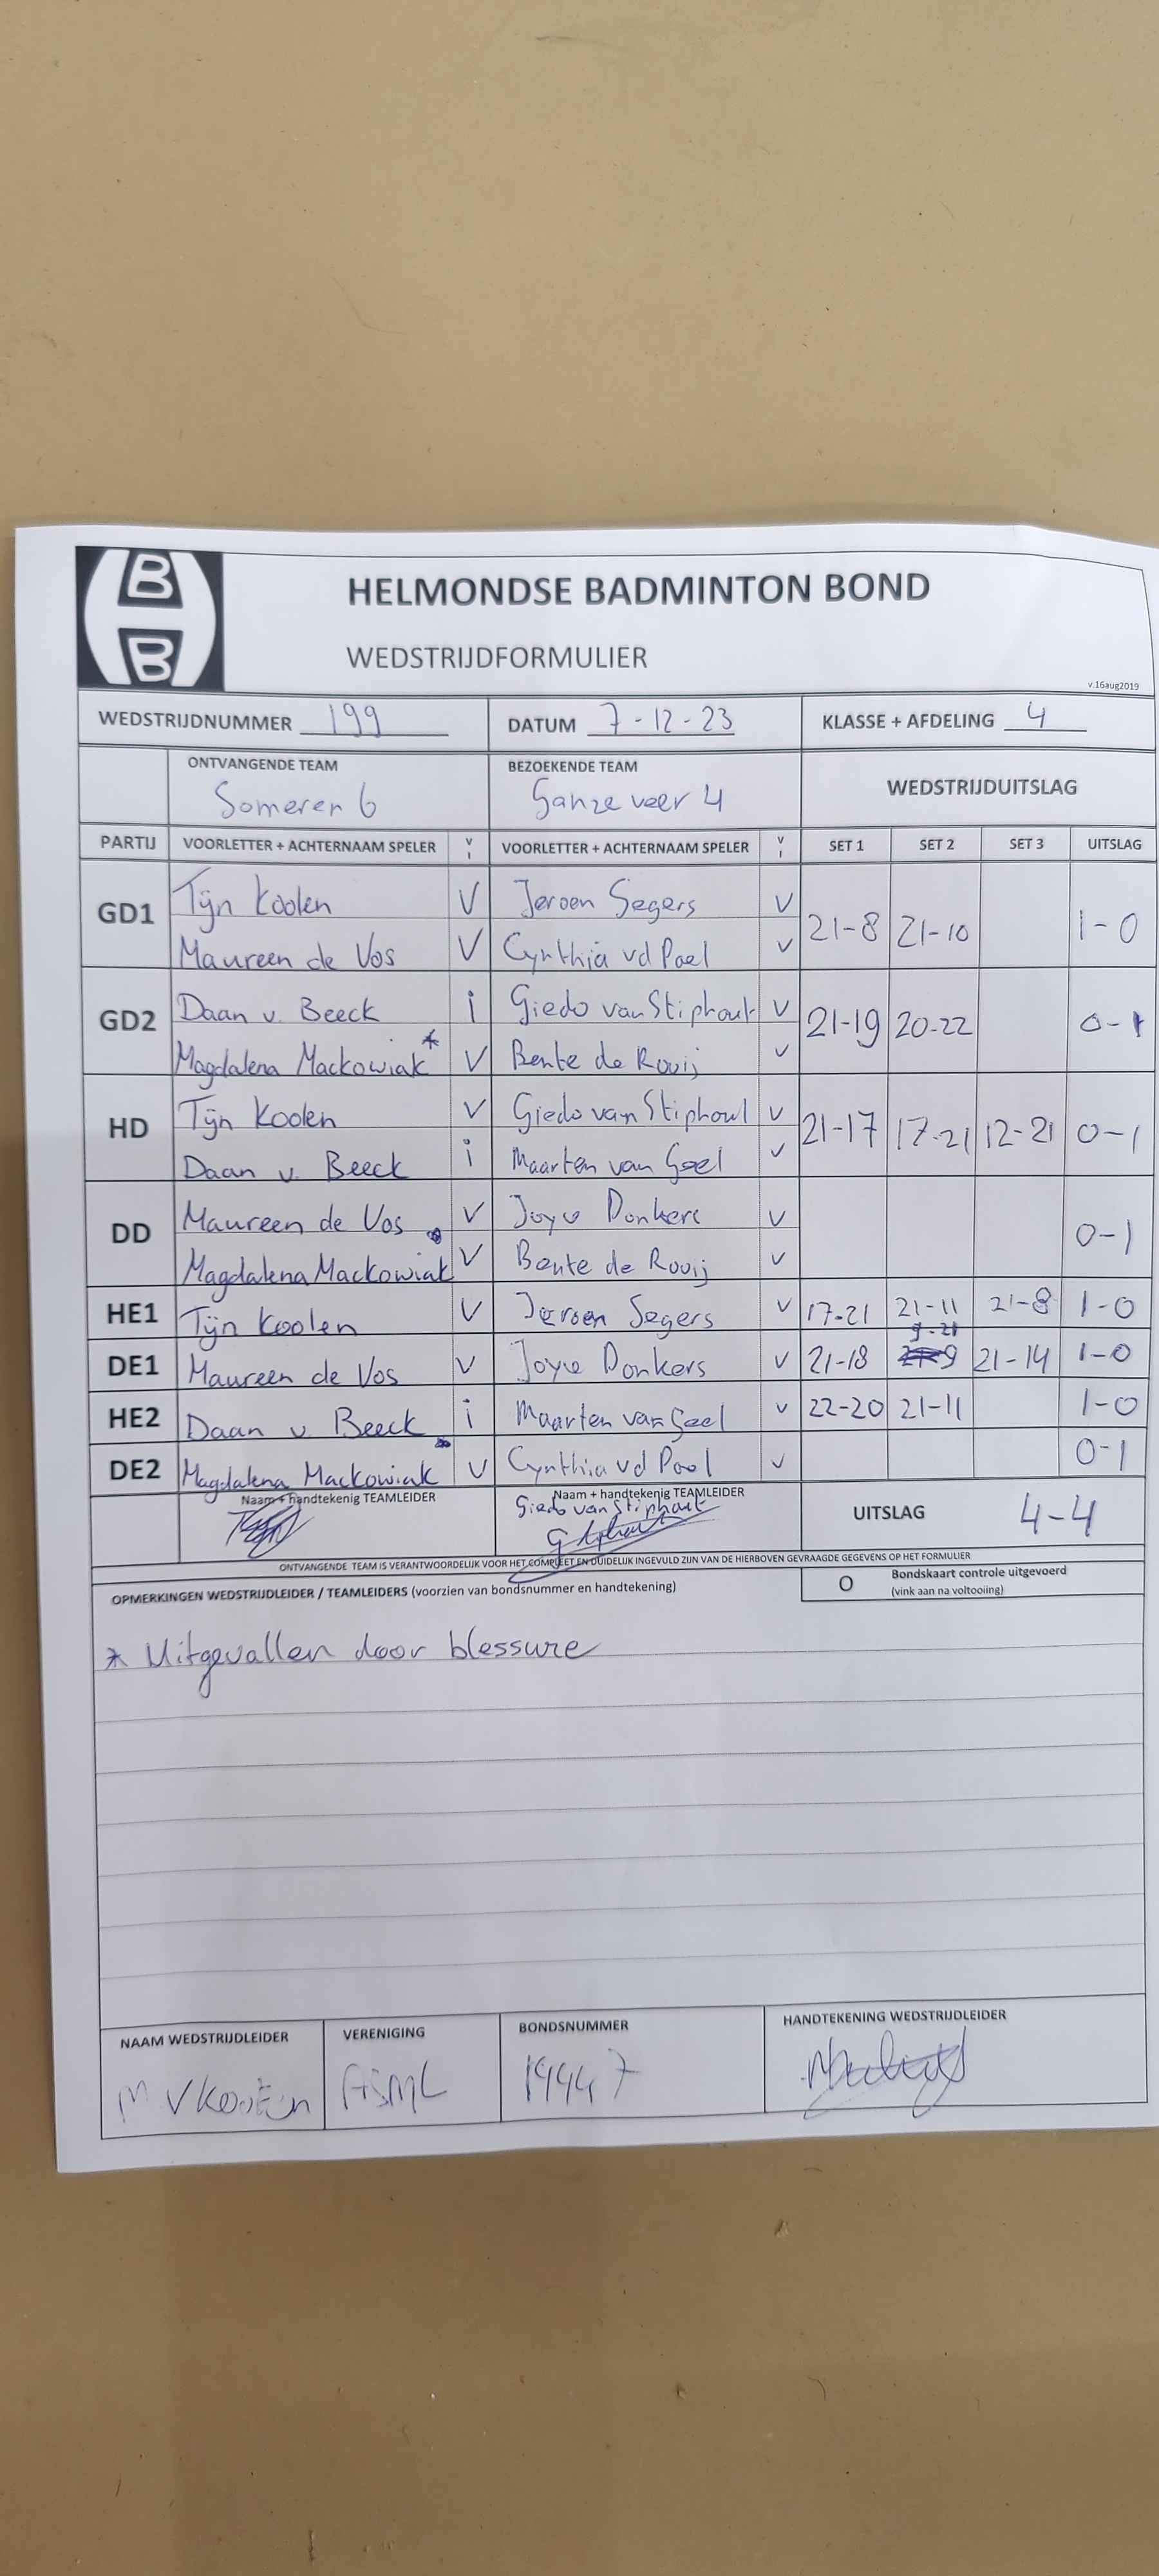 B
B
HELMONDSE BADMINTON BOND
WEDSTRIJDFORMULIER
v.16aug2019
WEDSTRIJDNUMMER 199 DATUM 7-12-23 KLASSE + AFDELING 4
ONTVANGENDE TEAM BEZOEKENDE TEAM WEDSTRIJDUITSLAG
Someren 6 Ganzeveer 4
PARTIJ VOORLETTER + ACHTERNAAM SPELER V I VOORLETTER + ACHTERNAAM SPELER V I SET 1 SET 2 SET 3 UITSLAG
GD1 Tijn Koolen V Jeroen Segers V 21-8 21-10 1-0
Maureen de Vos V Cynthia vd Poel V
GD2 Daan v. Beeck i Giedo van Stiphout V 21-19 20-22 0-1
Magdalena Mackowiak * V Bente de Rooij V
HD Tijn Koolen V Giedo van Stiphout V 21-17 17-21 12-21 0-1
Daan v. Beeck i Maarten van Geel V
DD Maureen de Vos V Joyce Donkers V 0-1
Magdalena Mackowiak V Bente de Rooij V
HE1 Tijn Koolen V Jeroen Segers V 17-21 21-11 21-8 1-0
DE1 Maureen de Vos V Joyce Donkers V 21-18 9-21 21-14 1-0
HE2 Daan v. Beeck i Maarten van Geel V 22-20 21-11 1-0
DE2 Magdalena Mackowiak V Cynthia vd Poel V 0-1
Naam + handtekenig TEAMLEIDER Naam + handtekenig TEAMLEIDER UITSLAG 4-4
Giedo van Stiphout
ONTVANGENDE TEAM IS VERANTWOORDELIJK VOOR HET COMPLEET EN DUIDELIJK INGEVULD ZIJN VAN DE HIERBOVEN GEVRAAGDE GEGEVENS OP HET FORMULIER
OPMERKINGEN WEDSTRIJDLEIDER / TEAMLEIDERS (voorzien van bondsnummer en handtekening) O Bondskaart controle uitgevoerd
(vink aan na voltooiing)
* Uitgevallen door blessure
NAAM WEDSTRIJDLEIDER VERENIGING BONDSNUMMER HANDTEKENING WEDSTRIJDLEIDER
M v Kooten ASML 19447